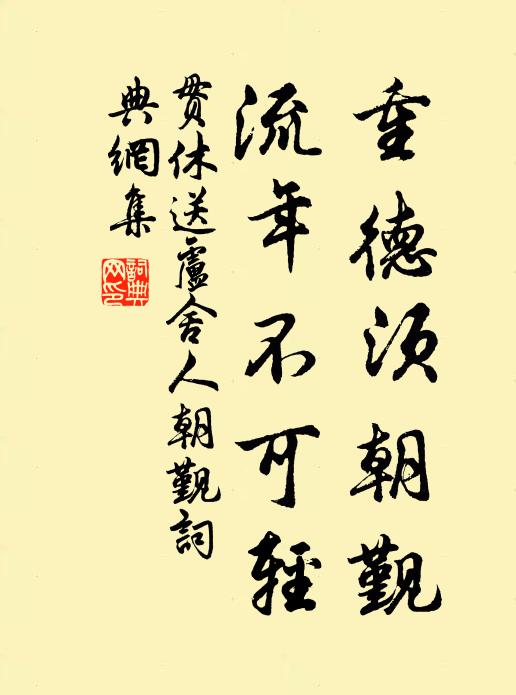 重德須朝覲
流年不可輕
貫休送盧舍人朝覲詞
典網集
詞典
网印